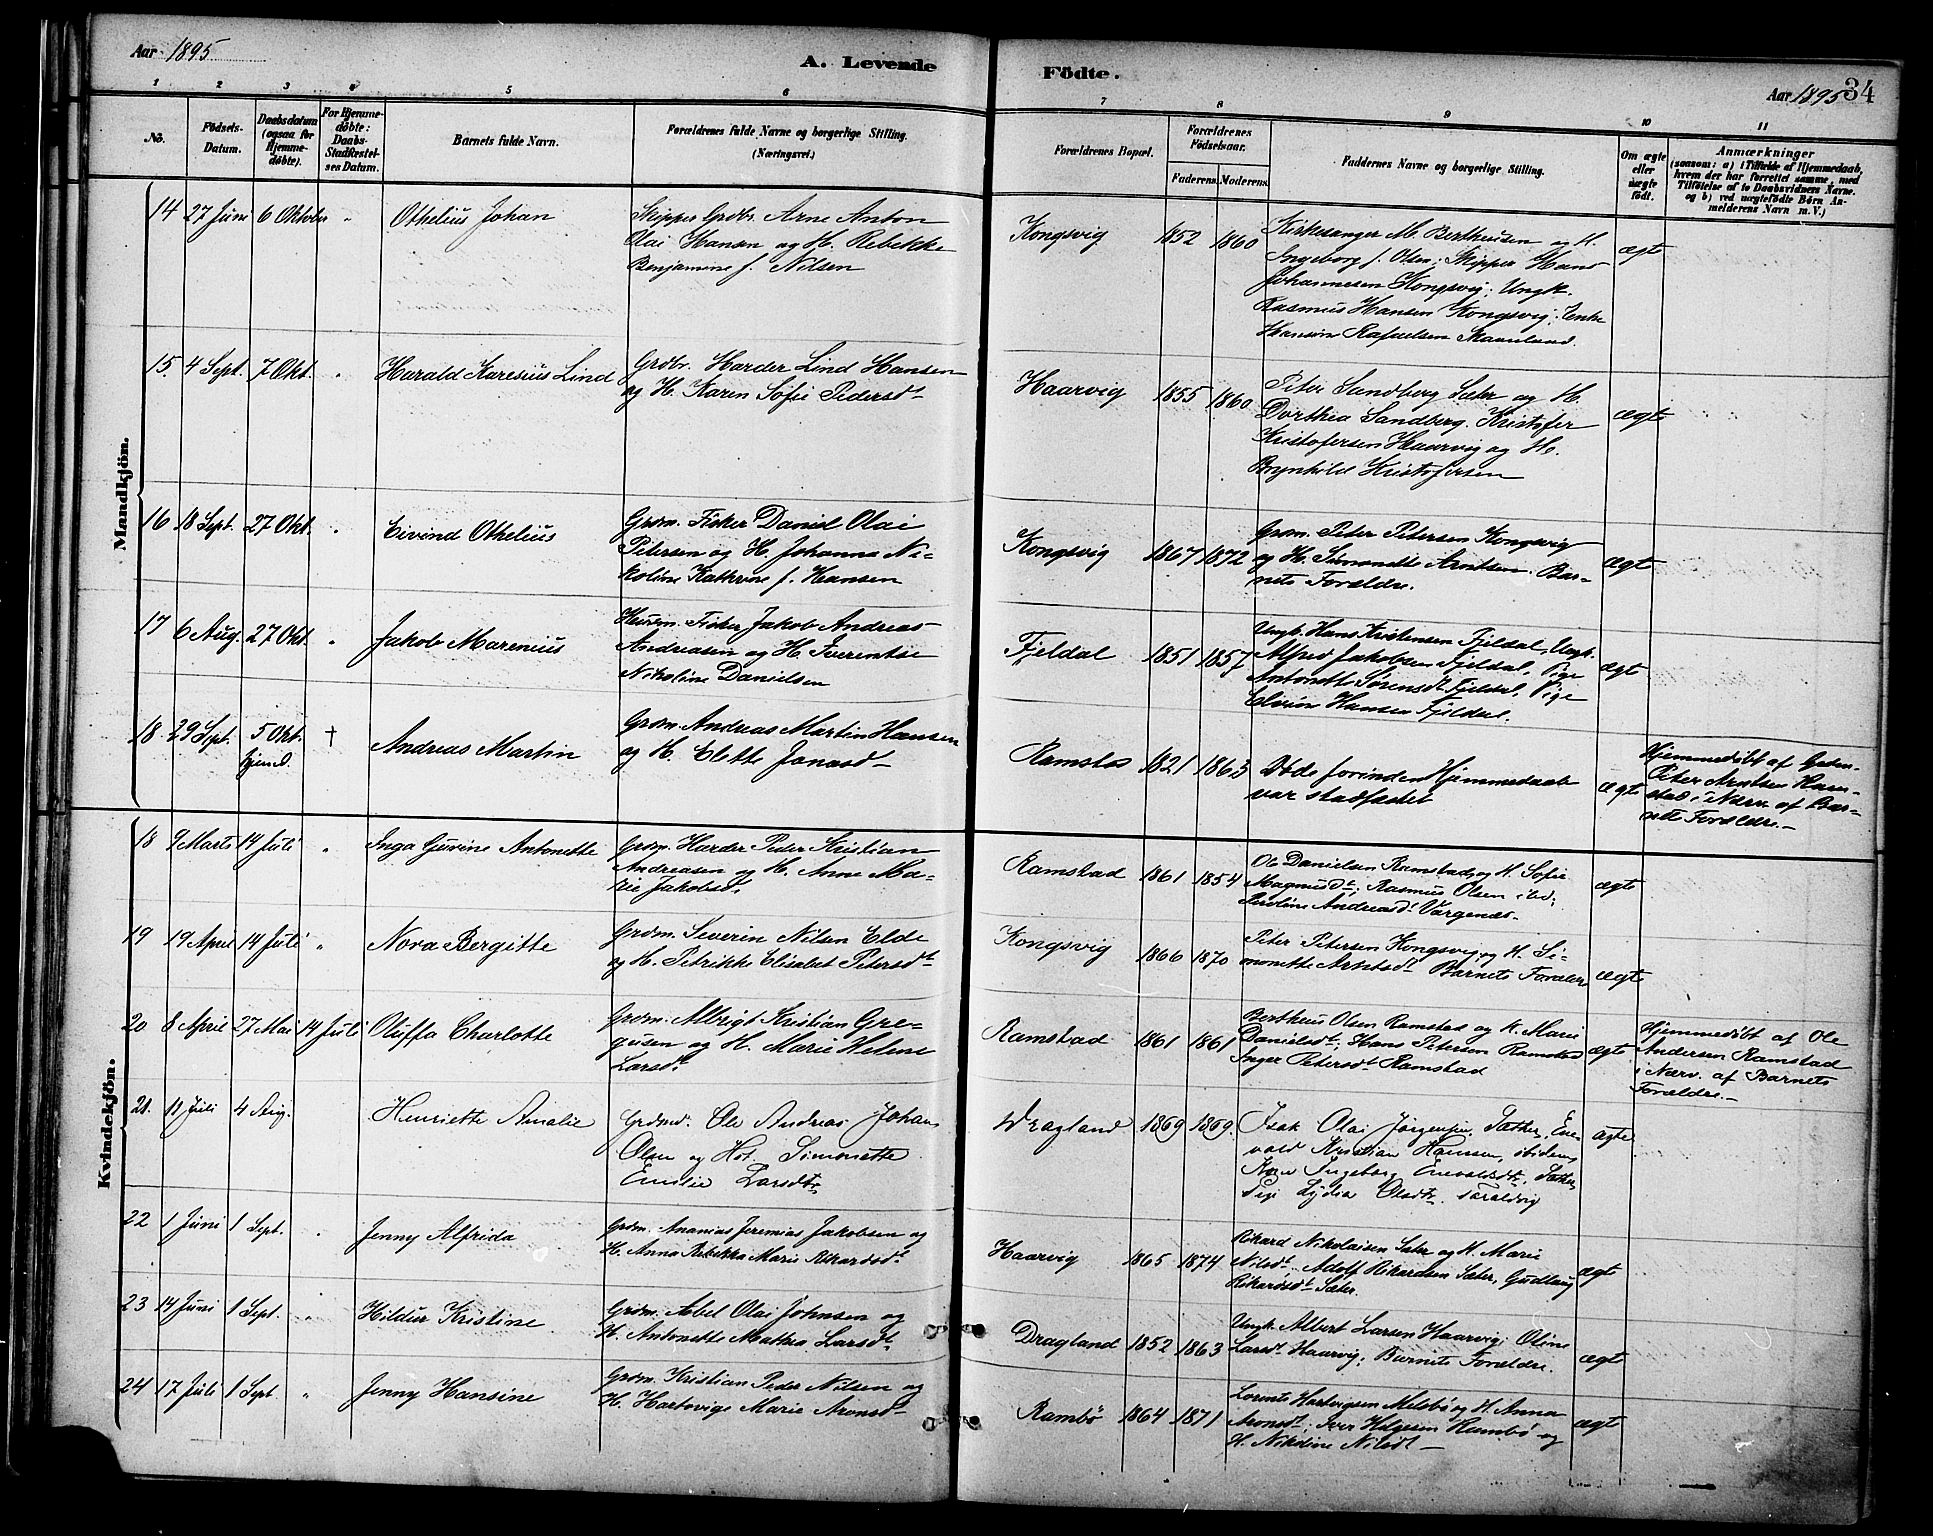 Aar 1895
A. Levende
Födte.
Aar 1895
34
1 2 3 4 5 6 7 8 9 10 11
No.
Födsels-
Datum.
Daabsdatum
(ogsaa for
Hjemme-
döbte).
For Hjemme-
döbte:
Daabs-
Stadfæstel-
ses Datum.
Barnets fulde Navn.
Forældrenes fulde Navne og borgerlige Stilling.
(Næringsvei.)
Forældrenes Bopæl.
Forældrenes
Födselsaar.
Faderens.
Moderens.
Faddernes Navne og borgerlige Stilling.
Om ægte
eller
uægte
födt.
Anmærkninger
(saasom: a) i Tilfælde af Hjemmedaab,
hvem der har forrettet samme, med
Tilföielse af to Daabsvidners Navne.
og b) ved uægtefödte Börn An-
melderens Navn m. V.)
Mandkjön.
14 27 Juni 6 Oktober " Othelius Johan
Skipper Grdbr. Arne Anton
Olai Hansen og H. Rebekke
Benjamine f. Nilsen
Kongsvig 1852 1860
Kirkesanger M. Bertheusen og H.
Ingeborg f. Olsen; Skipper Hans
Johannesen Kongsvig; Ungk.
Rasmus Hansen Kongsvig; Enke
Rafaelsen
ægte
15. 4 Sept. 7 Okt. " Harald Karesius Lind
Grdbr. Harder Lind Hansen
og H. Karen Sofie Pedersdt
Haarvig 1855 1860
Peter Sandberg Sæter og H.
Dorthea Sandberg. Kristofer
Kristofersen Haarvig og H.
Brynhild Kristofersen
ægte
16 18 Sept. 27 Okt. " Eivind Othelius
Grdm. Fisker Daniel Olai
Petersen og H. Johanna Ni-
koline Kathrine f. Hansen
Kongsvig 1867 1872
Grdm. Peter Petersen Kongsvig
og H. Simonette Arntsen. Bar-
nets Forældre.
ægte
17 6 Aug. 27 Okt. " Jakob Marenius
Husm. Fisker Jakob Andreas
Andreasen og H.
Nikoline Danielsen
Fjeldal 1851 1857
Ungk. Hans Kristensen Fjeldal, Ungk.
Alfred Jakobsen Fjeldal, Pige
Antonette Sørensdt Fjeldal, Pige
Hansen Fjeldal.
ægte
18 29 Sept. 5 Okt.
hjemd.
† Andreas Martin
Grdm. Andreas Martin Hansen
og H. Elette Jonasdt
Ramstad 1821 1863
Døde forinden Hjemmedaab
var stadfæstet
ægte
Hjemmedøbt af Grdm.
Peter Arntsen Ram-
stad i Nærv. af Bar-
nets Forældre.-
Kvindekjön.
18 9 Marts 14 Juli " Inga Guvine Antonette
Grdm. Harder Peder Kristian
Andreasen og H. Anne Ma-
rie Jakobsdt
Ramstad 1861 1854
Ole Danielsen Ramstad og H. Sofie
Magnusdt; Rasmus Olsen ibd;
Andreasdt Vargenæs.
ægte
19 19 April 14 Juli " Nora Bergitte
Grdm. Severin Nilsen Elde
og H. Petrikke Elisabet Petersdt
Kongsvig 1866 1870
Peter Petersen Kongsvig og H. Si-
monette Arntsdt Barnets Forældre
ægte
20 8 April 27 Mai 14 Juli Oluffa Charlotte
Grdm. Albrigt Kristian Gre-
gusen og H. Marie Helene
Larsdt
Ramstad 1861 1861
Bertheus Olsen Ramstad og H. Marie
Danielsdt; Hans Petersen Ramstad
Inger Petersdt Ramstad
ægte
Hjemmedøbt af Ole
Andersen Ramstad
i Nærv. af Barnets
Forældre.-
21. 11 Juli 4 Aug. Henriette Amalie
Grdmd. Ole Andreas Johan
Olsen og Hst. Simonette
Emilie Larsdtr
Dragland 1869 1869.
Isak Olai Jørgensen, Sæther, Ene-
vald Kristian Hansen, ibidem,
Kone Ingeborg Enevaldsdtr. Sæther
Pige Lydia Olsdtr.
ægte
22 1 Juni 1 Sept. " Jenny Alfrida
Grdm. Ananias Jeremias Jakobsen og
H. Anna Rebekka Marie Rikardsdt
Haarvig 1865 1874
Rikard Nikolaisen Sæter og H. Marie
Nilsdt; Adolf Rikardsen Sæter, Gudlaug
Rikardsdt Sæter.
ægte
23 14 Juni 1 Sept. " Hildur Kristine
Grdm. Abel Olai Johnsen og
H. Antonette Mathea Larsdt
Dragland 1852 1863
Ungk. Albert Larsen Haarvig; Oline
Larsdt Haarvig; Barnets Forældre.
ægte
24 17 Juli 1 Sept. " Jenny Hansine
Grdm. Kristian Peder Nilsen og
H. Hartvige Marie Aronsdt
Rambø 1864 1871
Lorents Hartvigsen Melsbø og H. Anna
Aronsdt; Iver Helgesen Rambø og
H. Nikoline Nilsdt
ægte